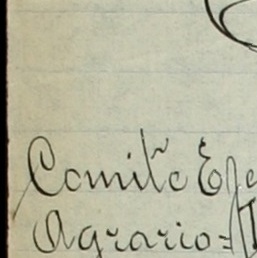 Comité Eje
Agrario=